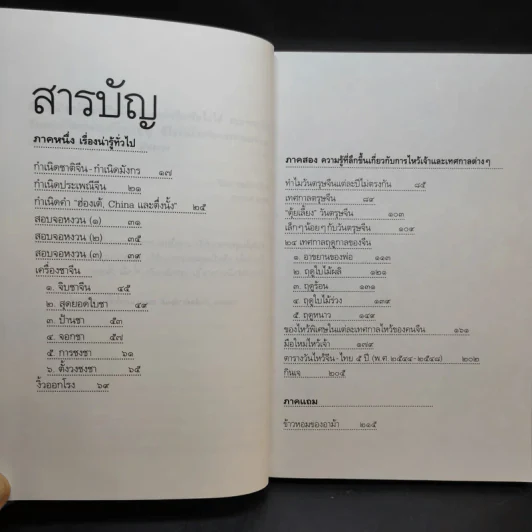 สารบัญ
ภาคหนึ่ง เรื่องน่ารู้ทั่วไป
กำเนิดชาติจีน-กำเนิดมังกร ๑๗
กำเนิดประเพณีจีน ๒๑
กำเนิดคำ "ฮ่องเต้, China และตึ่งนั้ง" ๒๕
สอบจอหงวน (๑) ๓๑
สอบจอหงวน (๒) ๓๕
สอบจอหงวน (๓) ๓๙
เครื่องชาจีน
๑. จิบชาจีน ๔๕
๒. สุดยอดใบชา ๔๙
๓. ป้านชา ๕๓
๔. จอกชา ๕๗
๕. การชงชา ๖๑
๖. ตั้งวงชงชา ๖๕
งิ้วออกโรง ๖๙
ภาคสอง ความรู้ที่ลึกขึ้นเกี่ยวกับการไหว้เจ้าและเทศกาลต่างๆ
ทำไมวันตรุษจีนแต่ละปีไม่ตรงกัน ๘๕
เทศกาลตรุษจีน ๘๙
"ตุ้ยเลี้ยง" วันตรุษจีน ๑๐๓
เล็กๆน้อยๆกับวันตรุษจีน ๑๐๙
๒๔ เทศกาลฤดูกาลของจีน
๑. อาชยานของพ่อ ๑๑๓
๒. ฤดูใบไม้ผลิ ๑๒๑
๓. ฤดูร้อน ๑๓๑
๔. ฤดูใบไม้ร่วง ๑๓๙
๕. ฤดูหนาว ๑๔๙
ของไหว้พิเศษในแต่ละเทศกาลไหว้ของคนจีน ๑๖๑
มือใหม่ไหว้เจ้า ๑๗๙
ตารางวันไหว้จีน-ไทย ๕ ปี (พ.ศ. ๒๕๔๔-๒๕๔๘) ๒๐๒
กินเจ ๒๐๕
ภาคแถม
ข้าวหอมของอาม้า ๒๑๕